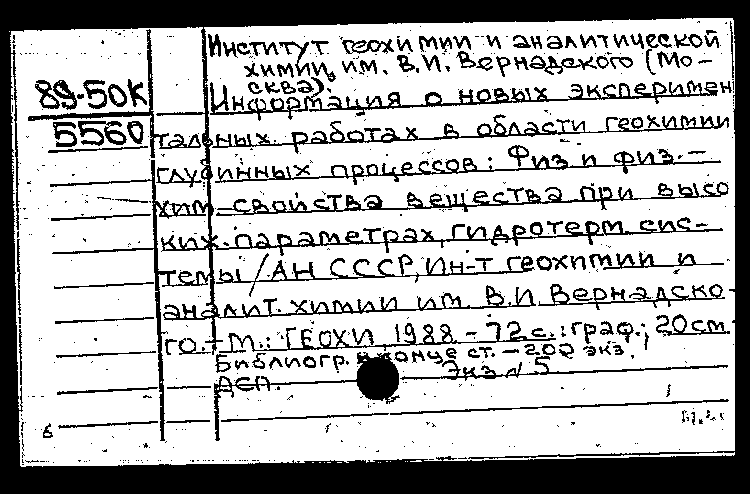 Институт геохимии и аналитической
химии им. В.И. Вернадского (Мо-
сква).
89-50К
5560
Информация о новых эксперимен
тальных работах в области геохимии
глубинных процессов: Физ и физ.-
хим свойства вещества при высо
ких параметрах, гидротерм сис-
темы / АН СССР, Ин-т геохимии и
аналит. химии им. В.И. Вернадско-
го. - М.: ГЕОХИ, 1988 - 72 с.: граф.; 20 см
Библиогр. в конце ст. - 200 экз.
Деп. Экз N 5